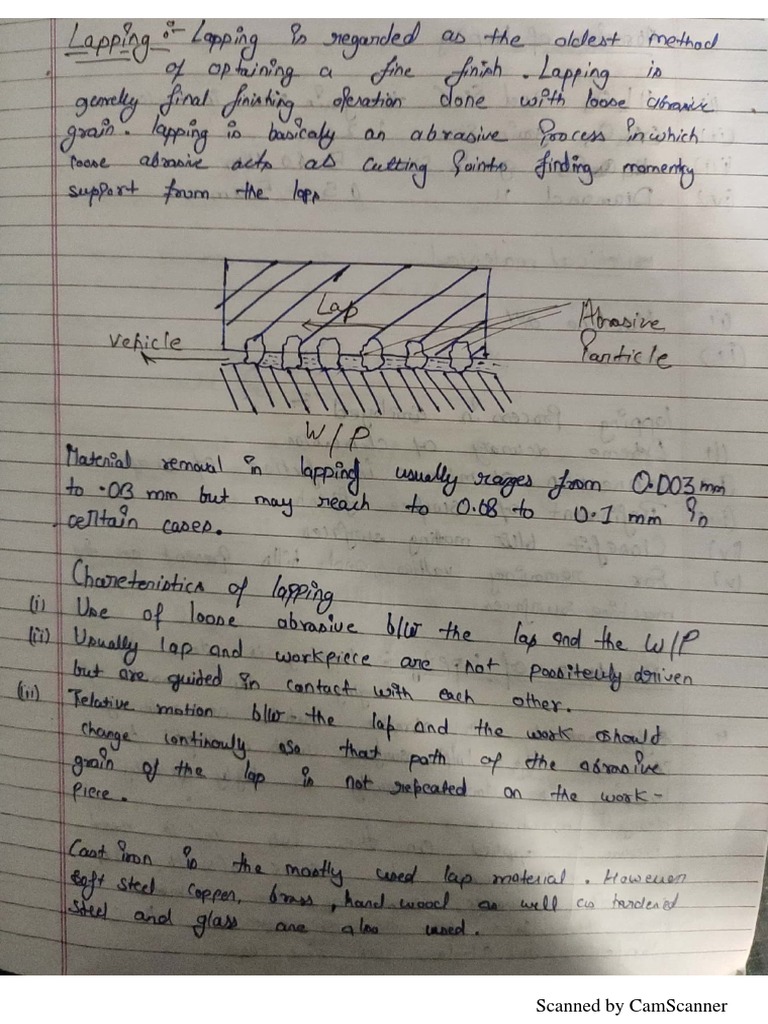 Lapping :- Lapping is regarded as the oldest method
of optaining a fine finish. Lapping is
generelly final finishing operation done with loose abrasive
grain. lapping is basicaly an abrasive process in which
loose abrasive acts as cutting points finding momenty
support from the lapp
Lap
Abrasive
Particle
vehicle
W/P
Material removal in lapping usually rages from 0.003 mm
to .03 mm but may reach to 0.08 to 0.1 mm in
certtain cases.
Chareteristics of lapping
(i) Use of loose abrasive b/w the lap and the W/P
(ii) Usually lap and workpiece are not possitevly driven
but are guided in contact with each other.
(ii) Relative motion b/w the lap and the work should
change continouly so that path of the abrasive
grain of the lap is not repeated on the work-
piece.
Cast iron is the mostly used lap material. However
soft steel copper, brass, hand wood as well as hardened
steel and glass are also used.
Scanned by CamScanner